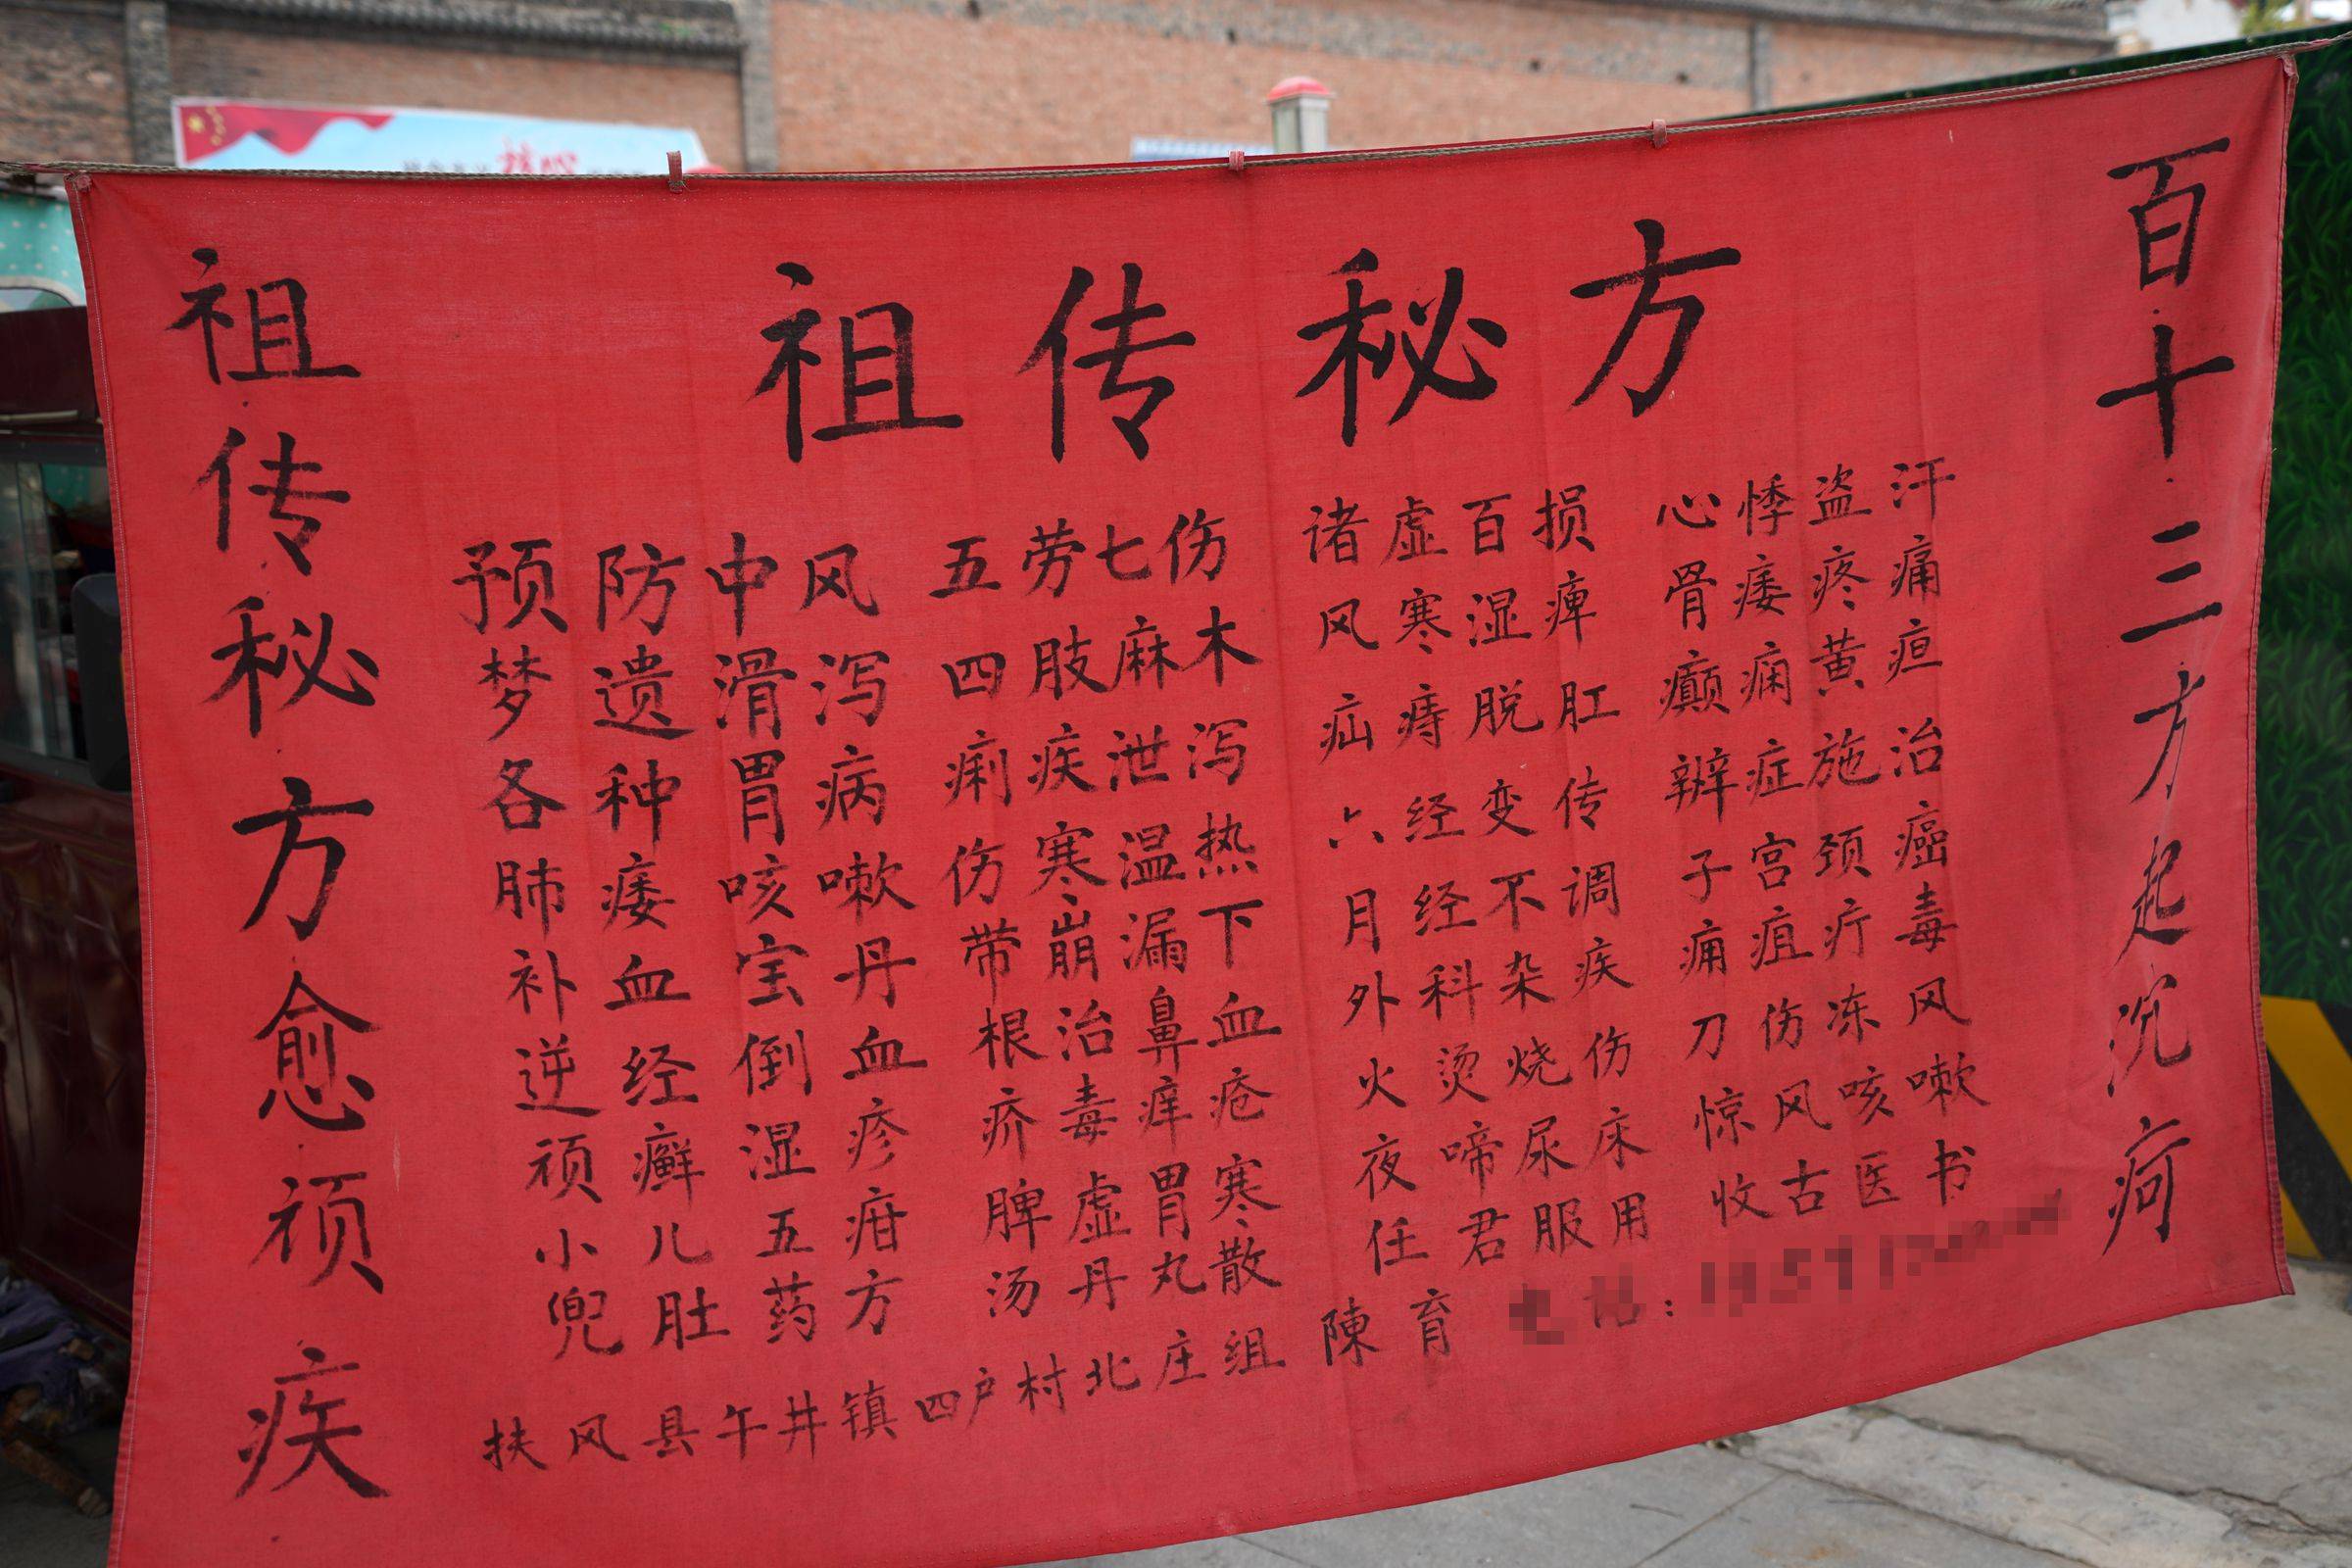 祖传秘方
百十三方起沉疴
预防中风 五劳七伤 诸虚百损 心悸盗汗
梦遗滑泻 四肢麻木 风寒湿痺 骨痿疼痛
各种胃病 痢疾泄泻 疝痔脱肛 癫痫黄疸
肺痿咳嗽 伤寒温热 六经变传 辨症施治
补血宝丹 带崩漏下 月经不调 子宫颈癌
逆经倒血 根治鼻血 外科杂疾 痈疽疔毒
顽癣湿疹 疥毒痒疮 火烫烧伤 刀伤冻风
小儿五疳 脾虚胃寒 夜啼尿床 惊风咳嗽
兜肚药方 汤丹丸散 任君服用 收古医书
扶风县午井镇四户村北庄组 陳育
祖传秘方愈顽疾